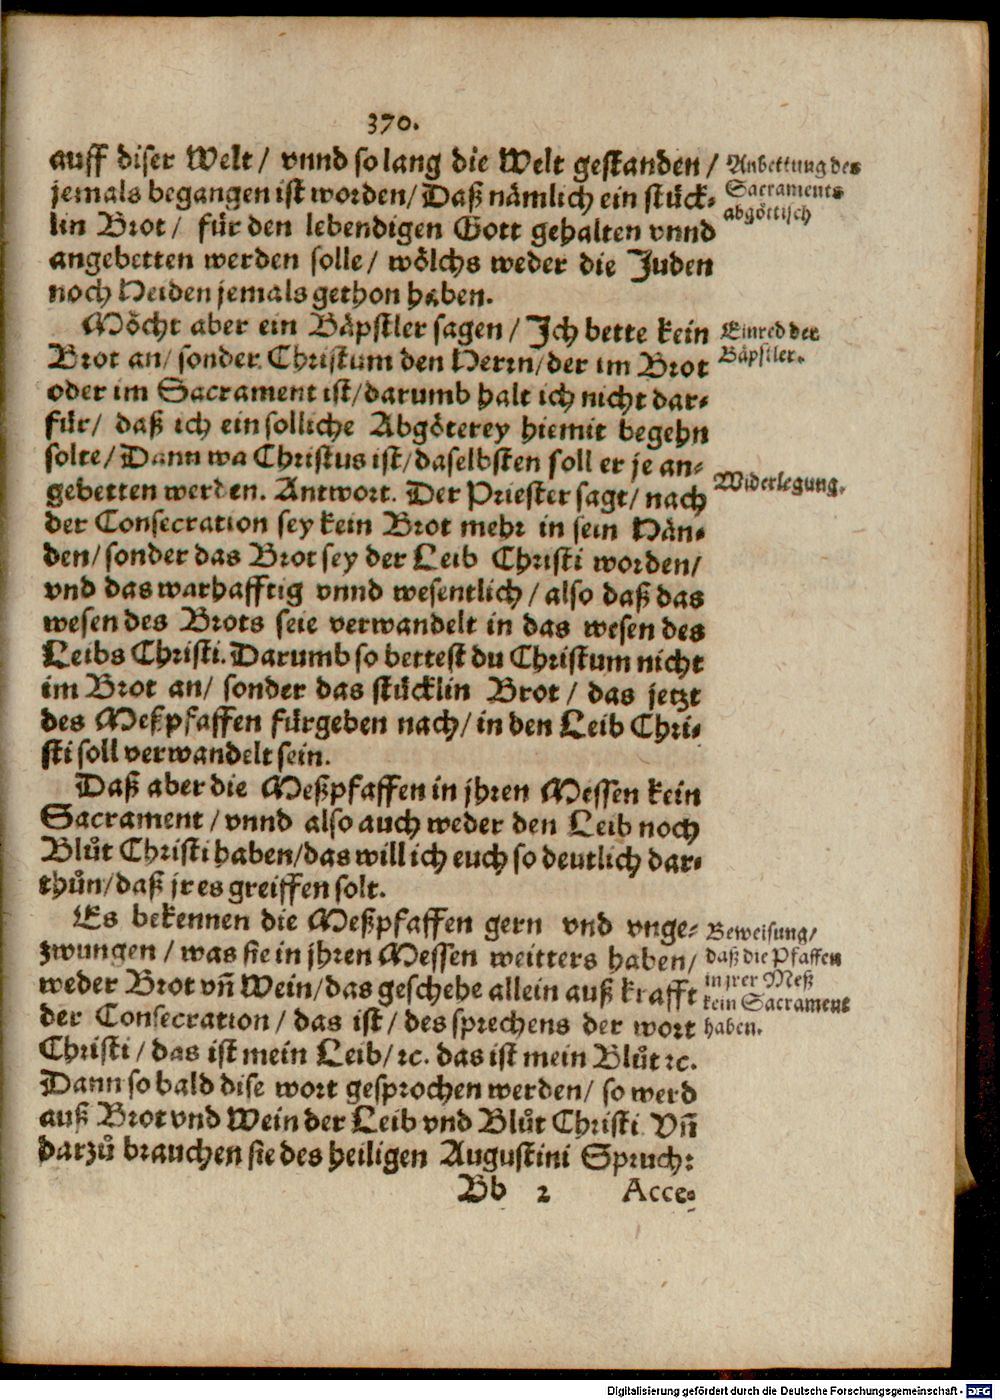 370.
auff diser Welt / vnnd so lang die Welt gestanden /
jemals begangen ist worden / Daß nämlich ein stück⸗
lin Brot / für den lebendigen Gott gehalten vnnd
angebetten werden solle / wölchs weder die Juden
noch Heiden jemals gethon haben.
Anbettung des
Sacraments
abgöttisch
Möcht aber ein Bäpstler sagen / Ich bette kein
Brot an / sonder Christum den Herrn / der im Brot
oder im Sacrament ist / darumb halt ich nicht dar⸗
für / daß ich ein solliche Abgöterey hiemit begehn
solte / Dann wa Christus ist / daselbsten soll er je an⸗
gebetten werden. Antwort. Der Priester sagt / nach
der Consecration sey kein Brot mehr in sein Hän⸗
den / sonder das Brot sey der Leib Christi worden /
vnd das warhafftig vnnd wesentlich / also daß das
wesen des Brots seie verwandelt in das wesen des
Leibs Christi. Darumb so bettest du Christum nicht
im Brot an / sonder das stücklin Brot / das jetzt
des Meßpfaffen fürgeben nach / in den Leib Chri⸗
sti soll verwandelt sein.
Einred der
Bäpstler.
Widerlegung.
Daß aber die Meßpfaffen in jhren Messen kein
Sacrament / vnnd also auch weder den Leib noch
Blůt Christi haben / das will ich euch so deutlich dar⸗
thůn / daß jr es greiffen solt.
Es bekennen die Meßpfaffen gern vnd vnge⸗
zwungen / was sie in jhren Messen weitters haben /
weder Brot vñ Wein / das geschehe allein auß krafft
der Consecration / das ist / des sprechens der wort
Christi / das ist mein Leib / ꝛc. das ist mein Blůt ꝛc.
Dann so bald dise wort gesprochen werden / so werd
auß Brot vnd Wein der Leib vnd Blůt Christi. Vñ
darzů brauchen sie des heiligen Augustini Spruch:
Beweisung /
daß die Pfaffen
in jrer Meß
kein Sacrament
haben.
Bb 2 Acce⸗
Digitalisierung gefördert durch die Deutsche Forschungsgemeinschaft - DFG